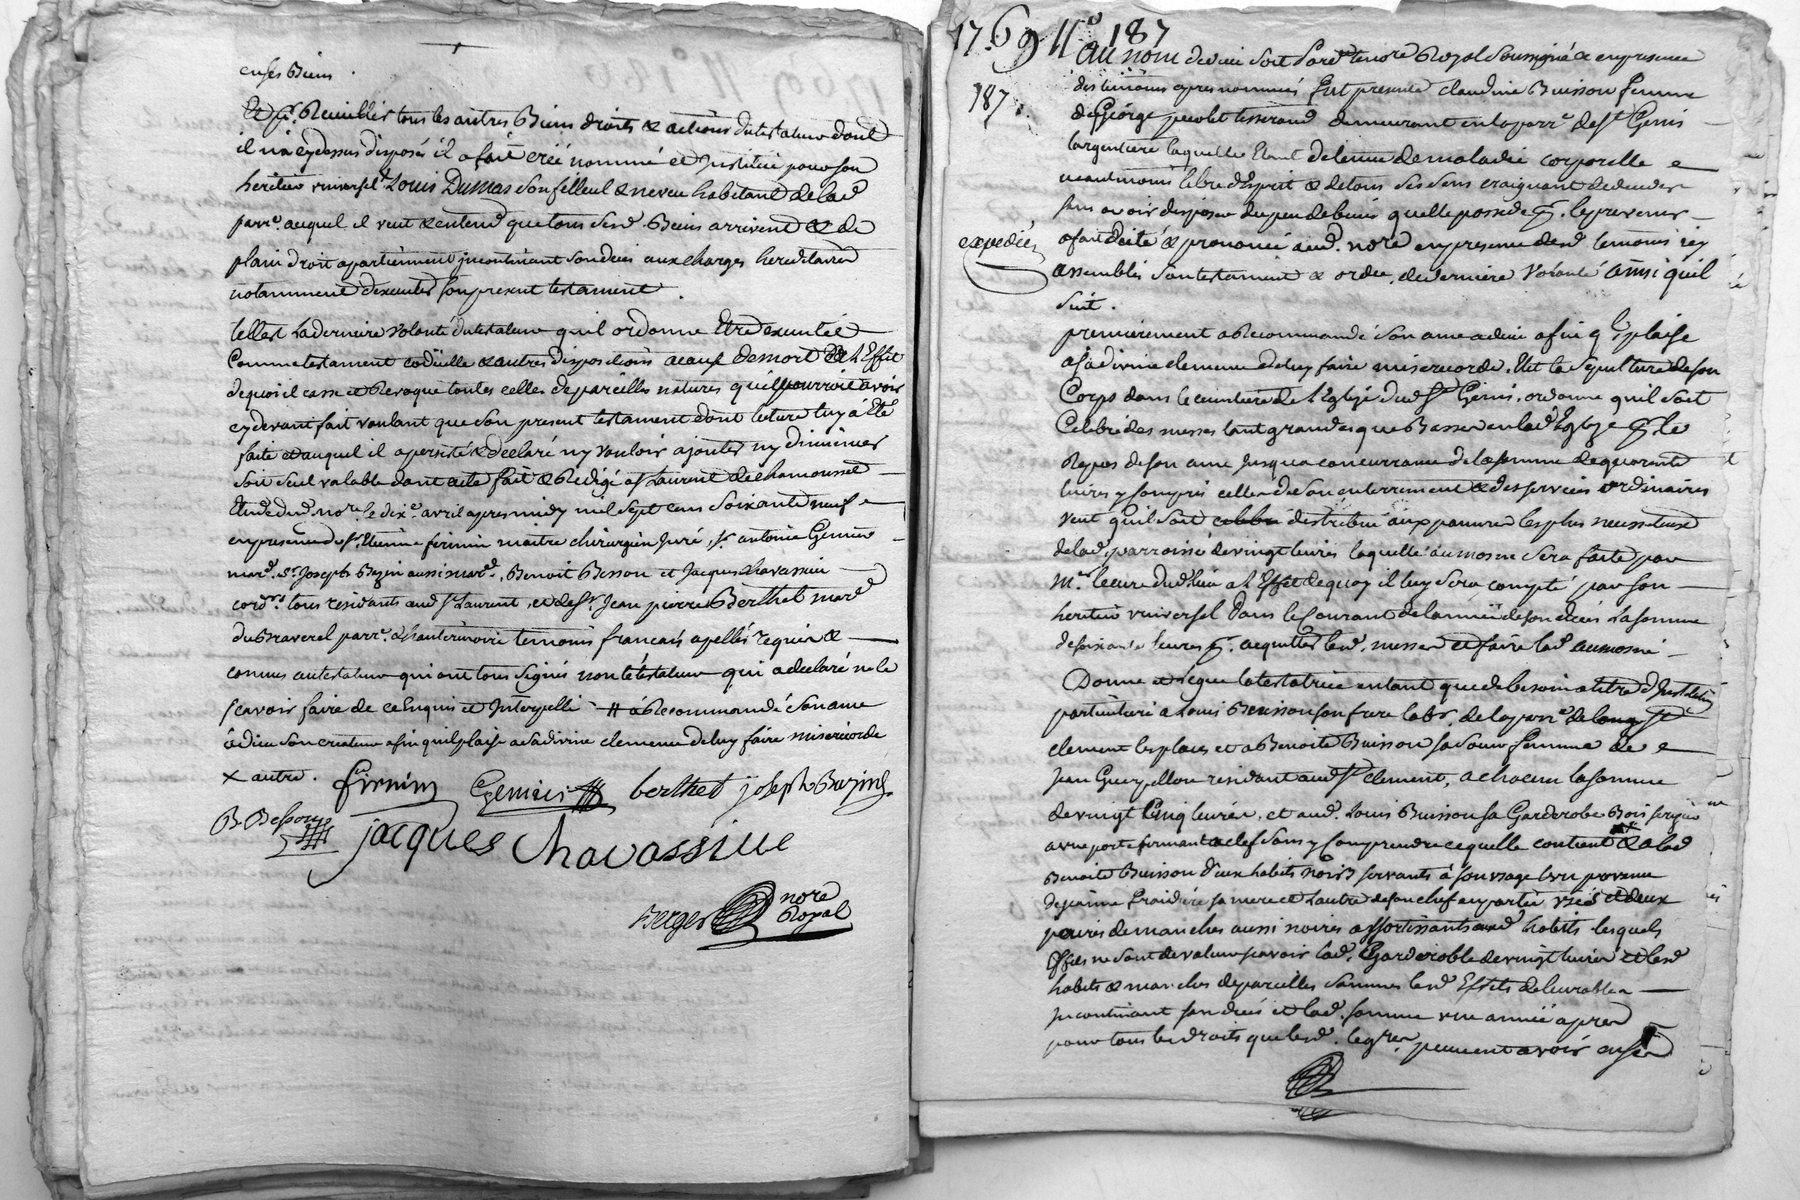 en ses Biens.
Et pr. Recuillir tous les autres Biens droits & actions du testateur dont
il n'a cydessus disposés il a fait creé nommé et Institué pour son
heritier universel Louis Dumas son filleul & neveu habitant de lad
parr. auquel il veut & entend que tous sesd. Biens arrivent & de
plain droit apartiennent incontinant son deces aux charges hereditaires
notamment d'executer son present testament.
telle est la derniere volonté du testateur qu'il ordonne Etre executée
Comme testament codicille & autres dispositions a cause de mort a l'Effet
de quoi il casse et Revoque toutes celles de pareilles natures qu'il pourroit avoir
cy devant fait voulant que son present testament dont lecture luy à Eté
faite et auquel il a persisté & declaré n'y vouloir ajouter ny diminuer
soit seul valable dont acte fait & Redigé a St Laurent de chamousset
Etude dud nore. le dix e. avril apres midy mil sept cens soixante neuf
en presence de sr. Etienne firmin maitre chirurgien Juré, sr. antoine Gemier
mard. sr. Joseph Bazin aussi mard. Benoit Besson et Jacques chavassieu
cord.rs tous residants aud St Laurent, et de sr. Jean pierre Berthet mard
du Braverel parr.e d'hauterivoire temoins francais apellés requis &
connus au testateur qui ont tous signés non le testateur qui a declaré ne le
scavoir faire de ce Enquis et Interpellé # à Recommandé son ame
à dieu son createur afin qu'il plaise a sa divine clemence de luy faire misericorde
x autre. firmin Gemier berthet joseph Bazin
B. Besson jacques Chavassiue
Berger nore
Royal
1769 No. 187
187
expediée
Au nom de dieu soit Pardt. le nore Royal soussigné & en presence
des temoins apres nommés fut presente claudine Buisson femme
de George tisserand demeurant en la parr.e de St Genis
largentiere laquelle Etant detenue de maladie corporelle &
neanmoins libre d'Esprit & de tous ses sens craignant de deceder
sans avoir disposer du peu de biens qu'elle possede pr. le prevenir
a fait dicté & prononcé aud. nore en presence desd temoins icy
assemblés son testament & ordce. de derniere volonté ainsi quil
suit.
premierement a Recommandé son ame a dieu afin ql plaise
a sa divine clemence de luy faire misericorde. Elit la Sepulture de son
Corps dans le cimetiere de l'Eglize dud St Genis, ordonne qu'il soit
Celebré des messes tant grandes que Basses en lad Eglize pr. le
Repos de son ame jusqu'a concurrance de la somme de quarente
livres y compris celles de son enterrement & des services ordinaires
veut qu'il soit celebré distribué aux pauvres les plus necessiteux
de lad. parroisse de vingt livres laquelle aumosne sera faite par
Mr. le cure dud lieu a l'Effet de quoy il luy sera compté par son
heritier universel dans le Courant de l'année de son deces la somme
de soixante livres pr. acquitter lesd. messes et faire lad aumosne.
Donne et legue la testatrice entant que de besoin a titre d'Institution
particuliere a Louis Buisson son frere labr. de la parr.e de St
clement les places et a Benoite Buisson sa Soeur femme de
Jean residant aud St clement, a chacun la somme
de vingt Cinq livres, et aud. Louis Buisson sa Garderobe Bois
a une porte fermant a clef sans y comprendre ce quelle contient & a lad
Benoite Buisson d'eux habits noirs servants à son usage l'un provenu
de jeanne sa mere et l'autre de son chef en partie usés et deux
paires de manches aussi noires assortissants auxd habits lesquels
Effets ne sont de valeur scavoir lad. Garderoble de vingt livres et lesd
habits & manches de pareilles sommes lesd Effets delivrables
Incontinant son deces et lad. somme une année apres
pour tous les droits que lesd. legres. peuvent avoir en ses